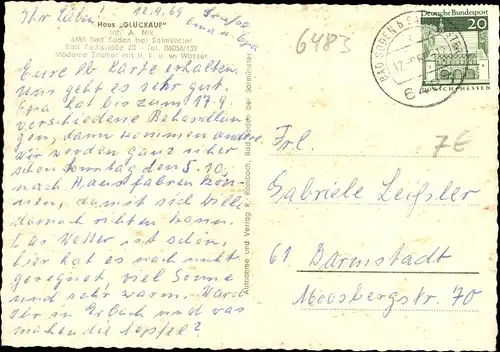 Ihr Lieben! 12.9.69 Grüße
Oma u. Eya
Haus "GLÜCKAUF"
Inh. A. Nix
6483 Bad Soden bei Salmünster
Kurt Roßstraße 20 - Tel. 06056/439
Moderne Zimmer mit fl. k. u. w. Wasser
Eure lb Karte erhalten.
Uns geht es sehr gut.
Eya hat bis zum 17.9.
verschiedene Behandlun-
gen, dann kommen andere.
Wir werden ganz sicher
schon Sonntag den 5.10.
nach Haus fahren kön-
nen, damit sich Willi
darnach richten kann.
Das Wetter ist schön,
hier hat es noch nicht
geregnet, viel Sonne
und sehr warm. Wart
Ihr in Erbach und was
machen die Äpfel?
Aufnahme und Verlag R. Rombach, Bad Soden bei Salmünster
6483
BAD SODEN b SALMÜNSTER
Deutsche Bundespost
20
LORSCH/HESSEN
7E
Frl.
Gabriele Leißler
61 Darmstadt
Moosbergstr. 70